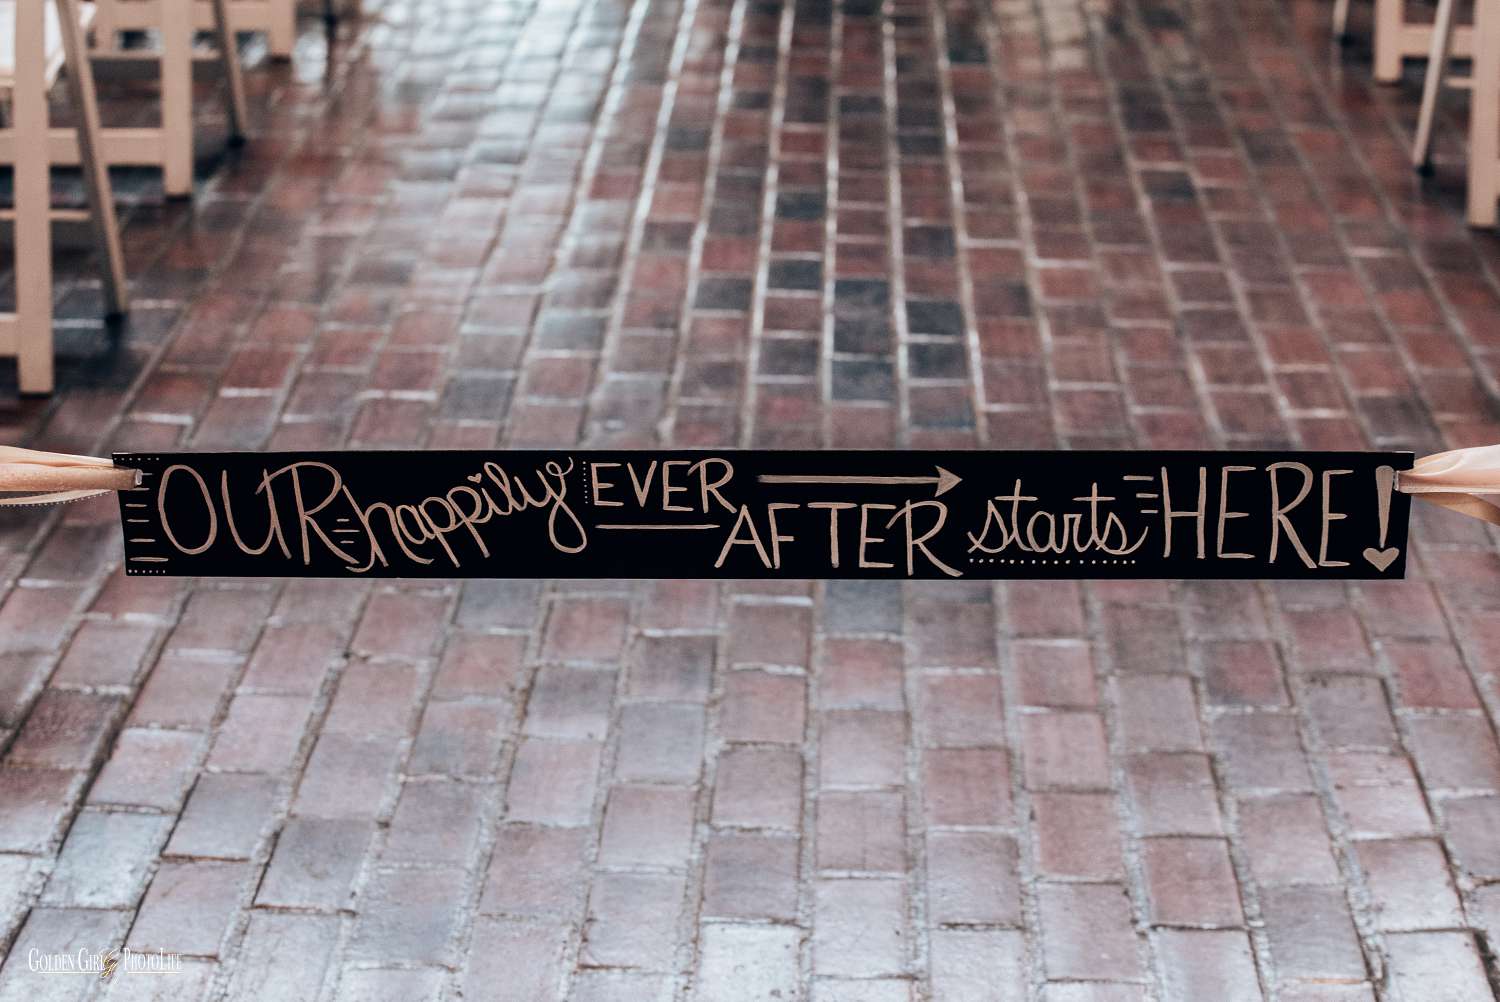 OUR happily EVER AFTER starts HERE!
GOLDEN GIRL PHOTOLIFE